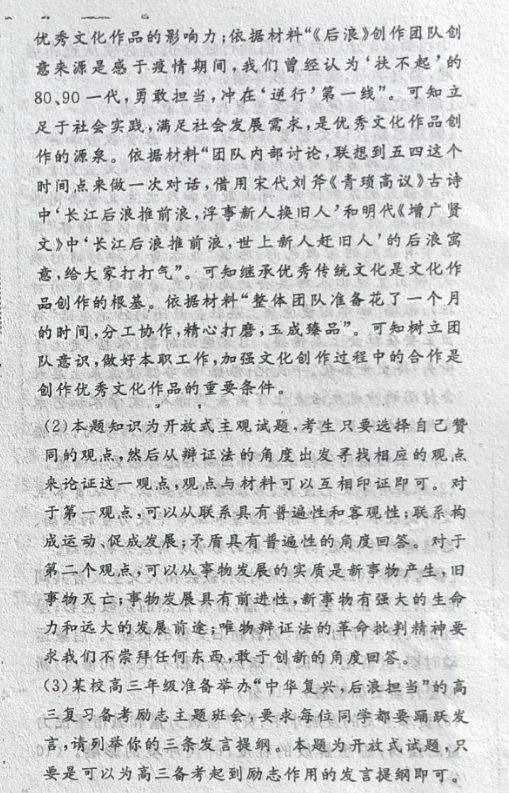 优秀文化作品的影响力;依据材料“《后浪》创作团队创
意来源是感于疫情期间,我们曾经认为‘扶不起’的
80、90一代,勇敢担当,冲在‘逆行’第一线”。可知立
足于社会实践,满足社会发展需求,是优秀文化作品创
作的源泉。依据材料“团队内部讨论,联想到五四这个
时间点来做一次对话,借用宋代刘斧《青琐高议》古诗
中‘长江后浪推前浪,浮事新人换旧人’和明代《增广贤
文》中‘长江后浪推前浪,世上新人赶旧人’的后浪寓
意,给大家打打气”。可知继承优秀传统文化是文化作
品创作的根基。依据材料“整体团队准备花了一个月
的时间,分工协作,精心打磨,玉成臻品”。可知树立团
队意识,做好本职工作,加强文化创作过程中的合作是
创作优秀文化作品的重要条件。
(2)本题知识为开放式主观试题,考生只要选择自己赞
同的观点,然后从辩证法的角度出发寻找相应的观点
来论证这一观点,观点与材料可以互相印证即可。对
于第一观点,可以从联系具有普遍性和客观性;联系构
成运动、促成发展;矛盾具有普遍性的角度回答。对于
第二个观点,可以从事物发展的实质是新事物产生,旧
事物灭亡;事物发展具有前进性,新事物有强大的生命
力和远大的发展前途;唯物辩证法的革命批判精神要
求我们不崇拜任何东西,敢于创新的角度回答。
(3)某校高三年级准备举办“中华复兴,后浪担当”的高
三复习备考励志主题班会,要求每位同学都要踊跃发
言,请列举你的三条发言提纲。本题为开放式试题,只
要是可以为高三备考起到励志作用的发言提纲即可。